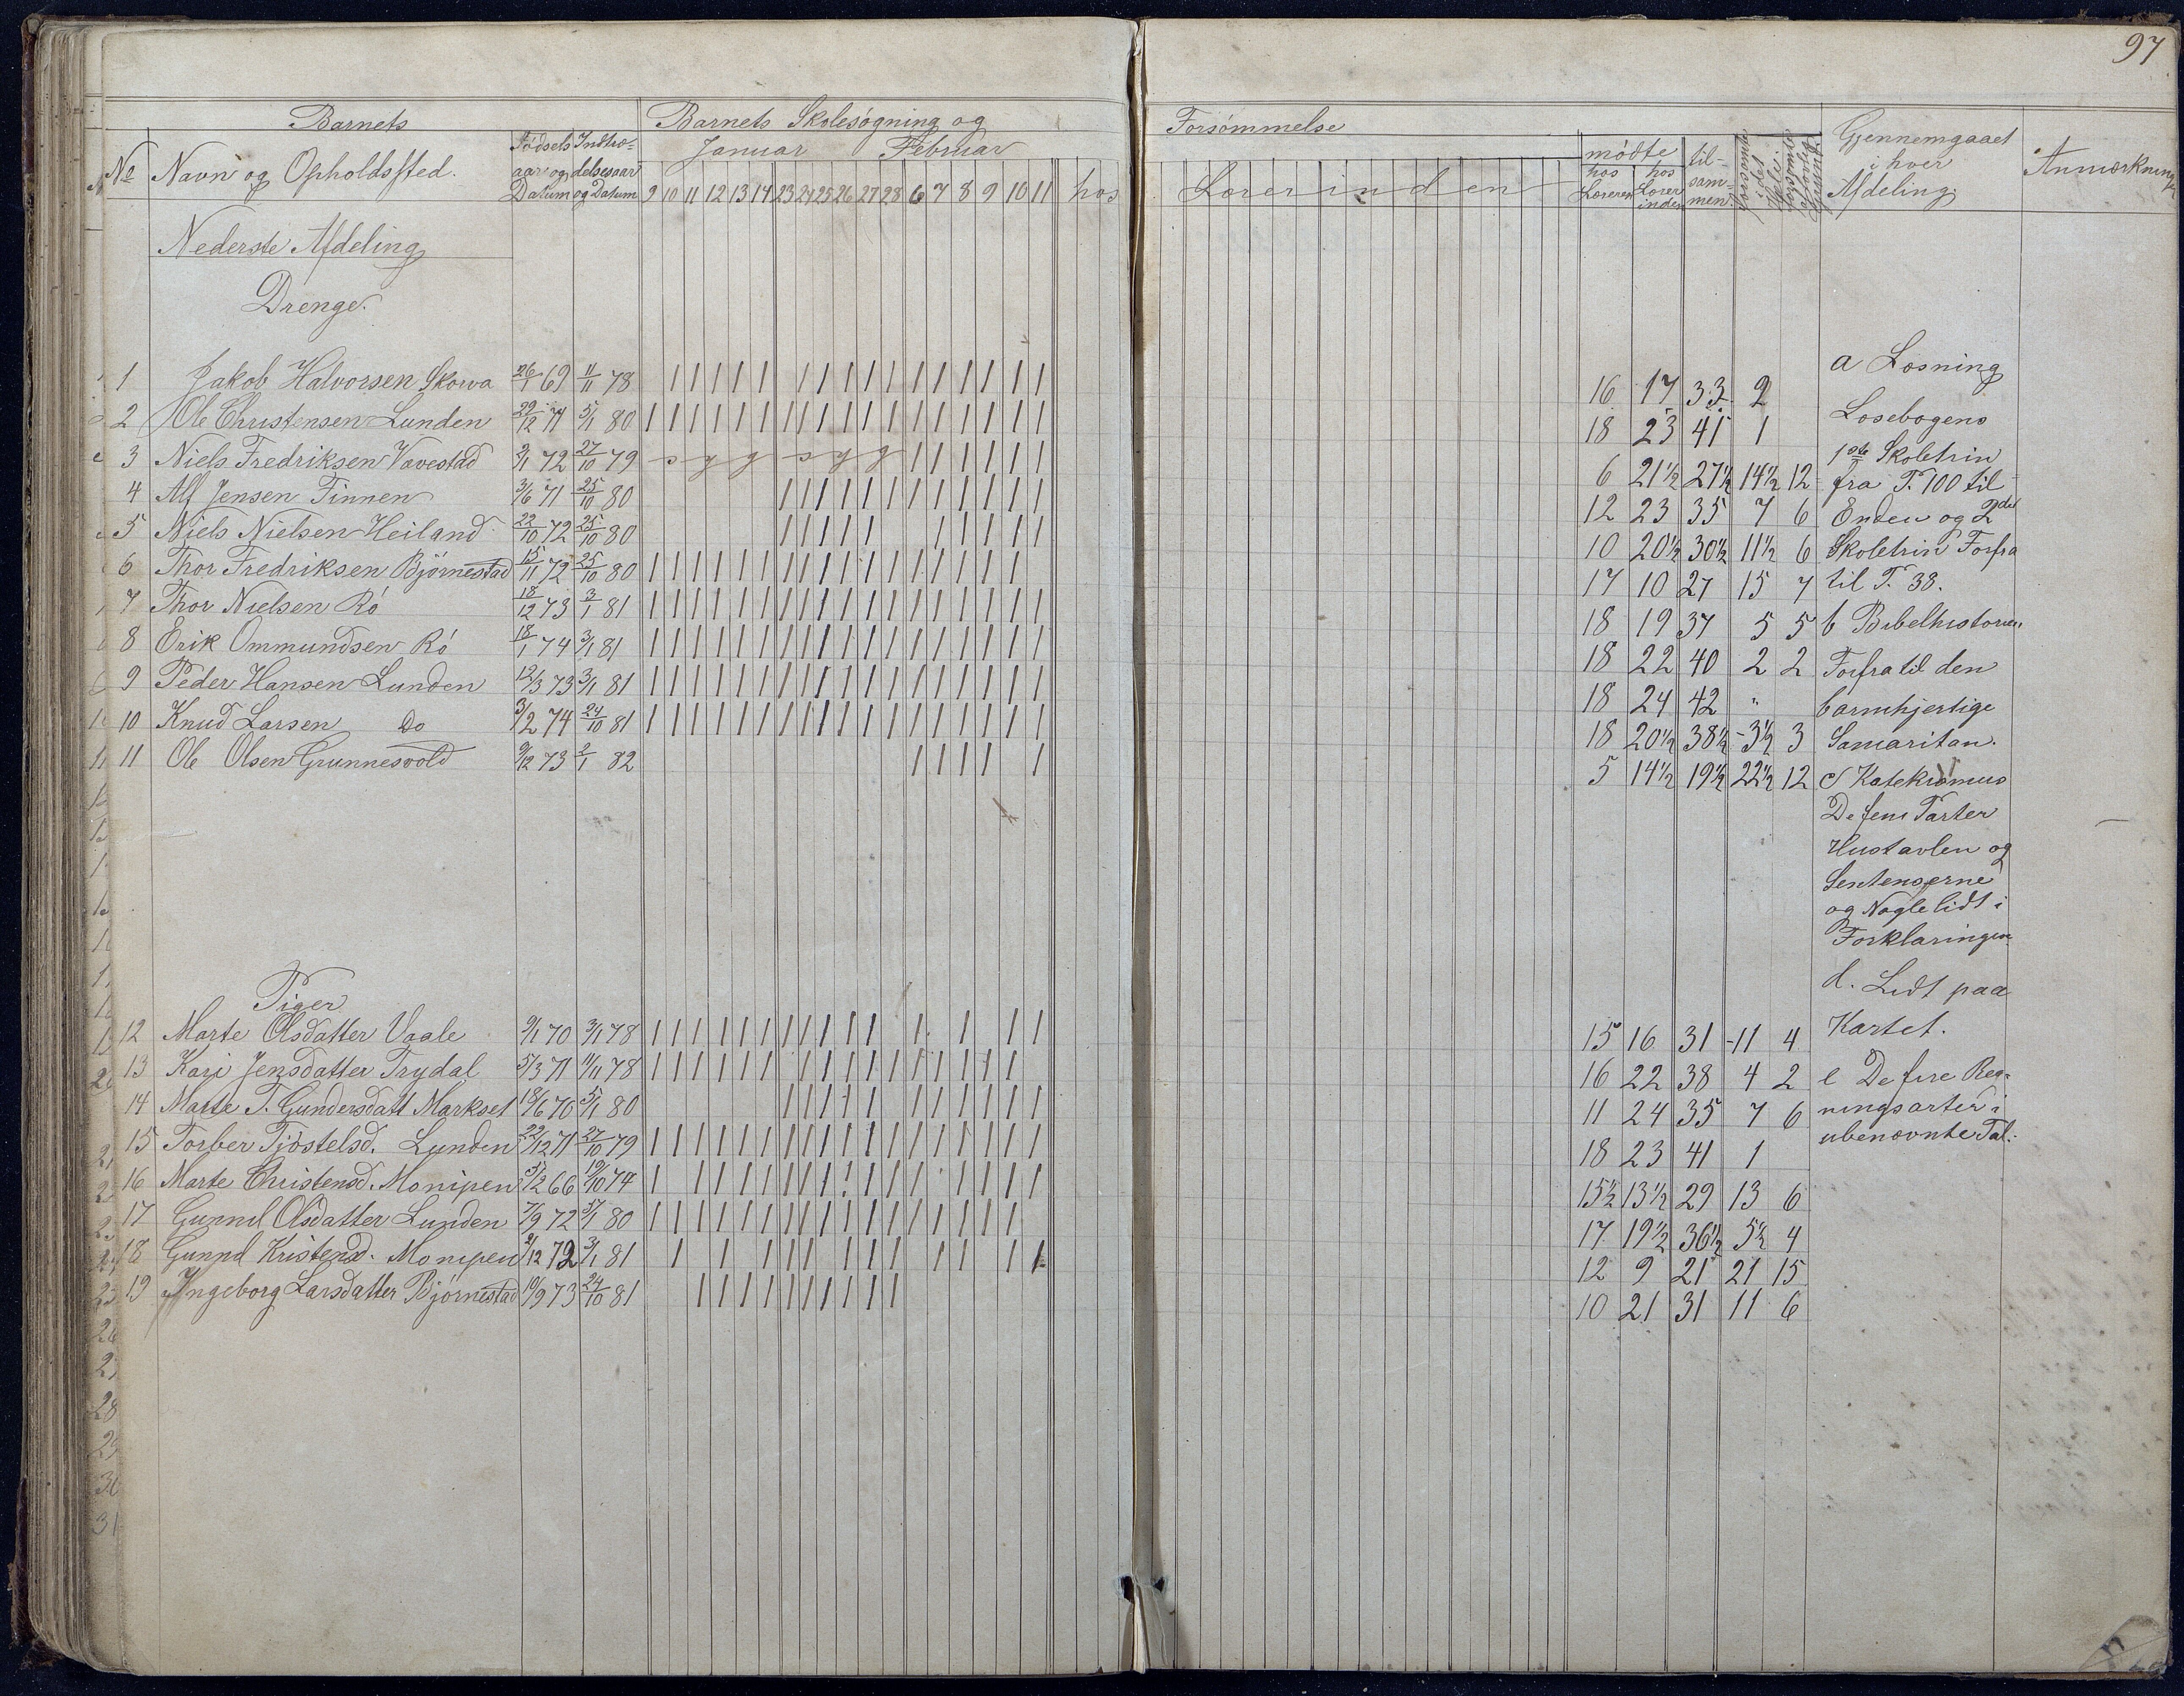 97
Barnets
Barnets Skolesøgning og
Forsømmelse
No Navn og Opholdssted.
Fødsels aar og Datum
Indtræ- delsesaar og Datum
Januar Februar
9 10 11 12 13 14 23 24 25 26 27 28 6 7 8 9 10 11 hos
Lærerinden
mødte
hos Læreren
hos Lærer inden
til- sam- men
forsømte i det Hele
Gjennemgaaet i hver Afdeling
Anmærkning
Nederste Afdeling
Drenge.
1 Jakob Halvorsen Skorva 26/1 69 11/11 78 | | | | | | | | | | | | | | | | | 16 17 33 2
2 Ole Christensen Lunden 29/12 71 5/1 80 | | | | | | | | | | | | | | | | | | 18 23 41 1
3 Niels Fredriksen Vavestad 3/1 72 27/10 79 s y g s y g | | | | | | 6 21½ 27½ 14½ 12
4 Alf Jensen Finnen 3/6 71 25/10 80 | | | | | | | | | | | | 12 23 35 7 6
5 Niels Nielsen Heiland 22/10 72 25/10 80 | | | | | | | | | | 10 20½ 30½ 11½ 6
6 Thor Fredriksen Bjørnestad 15/11 72 25/10 80 | | | | | | | | | | | | | | | | | 17 10 27 15 7
7 Thor Nielsen Rø 18/12 73 3/1 81 | | | | | | | | | | | | | | | | | | 18 19 37 5 5
8 Erik Ommundsen Rø 18/1 74 3/1 81 | | | | | | | | | | | | | | | | | | 18 22 40 2 2
9 Peder Hansen Lunden 12/3 73 3/1 81 | | | | | | | | | | | | | | | | | | 18 24 42 "
10 Knud Larsen Do 3/2 74 24/10 81 | | | | | | | | | | | | | | | | | | 18 20½ 38½ 3½ 3
11 Ole Olsen Grunnesvold 9/12 73 2/1 82 | | | | | 5 14½ 19½ 22½ 12
Piger
12 Marte Olsdatter Vaale 9/1 70 3/1 78 | | | | | | | | | | | | | | | 15 16 31 11 4
13 Kari Jensdatter Trydal 5/3 71 11/11 78 | | | | | | | | | | | | | | | | 16 22 38 4 2
14 Marte T. Gundersdatt Markset 18/6 70 5/1 80 | | | | | | | | | | | 11 24 35 7 6
15 Torber Tjøstelsd. Lunden 22/12 71 27/10 79 | | | | | | | | | | | | | | | | | | 18 23 41 1
16 Marte Christensd. Monipen 5/2 66 19/10 74 | | | | | | | | | | | | | | | | 15½ 13½ 29 13 6
17 Gunnil Olsdatter Lunden 7/9 72 5/1 80 | | | | | | | | | | | | | | | | | 17 19½ 36½ 5½ 4
18 Gunnil Kristensd. Monipen 2/12 72 3/1 81 | | | | | | | | | | | | 12 9 21 21 15
19 Ingeborg Larsdatter Bjørnestad 10/9 73 24/10 81 | | | | | | | | | | 10 21 31 11 6
a Læsning
Læsebogens
1ste Skoletrin
fra P. 100 til
Enden og 2det
Skoletrin Forfra
til P. 38.
b Bibelhistorien
Forfra til den
barmhjertige
Samaritan.
c Katekismus
De fem Parter
Hustavlen og
Sentenserne
og Nogle lidt i
Forklaringen
d. Lidt paa
Kartet.
e De fire Reg-
ningsarter i
ubenævnte Tal.